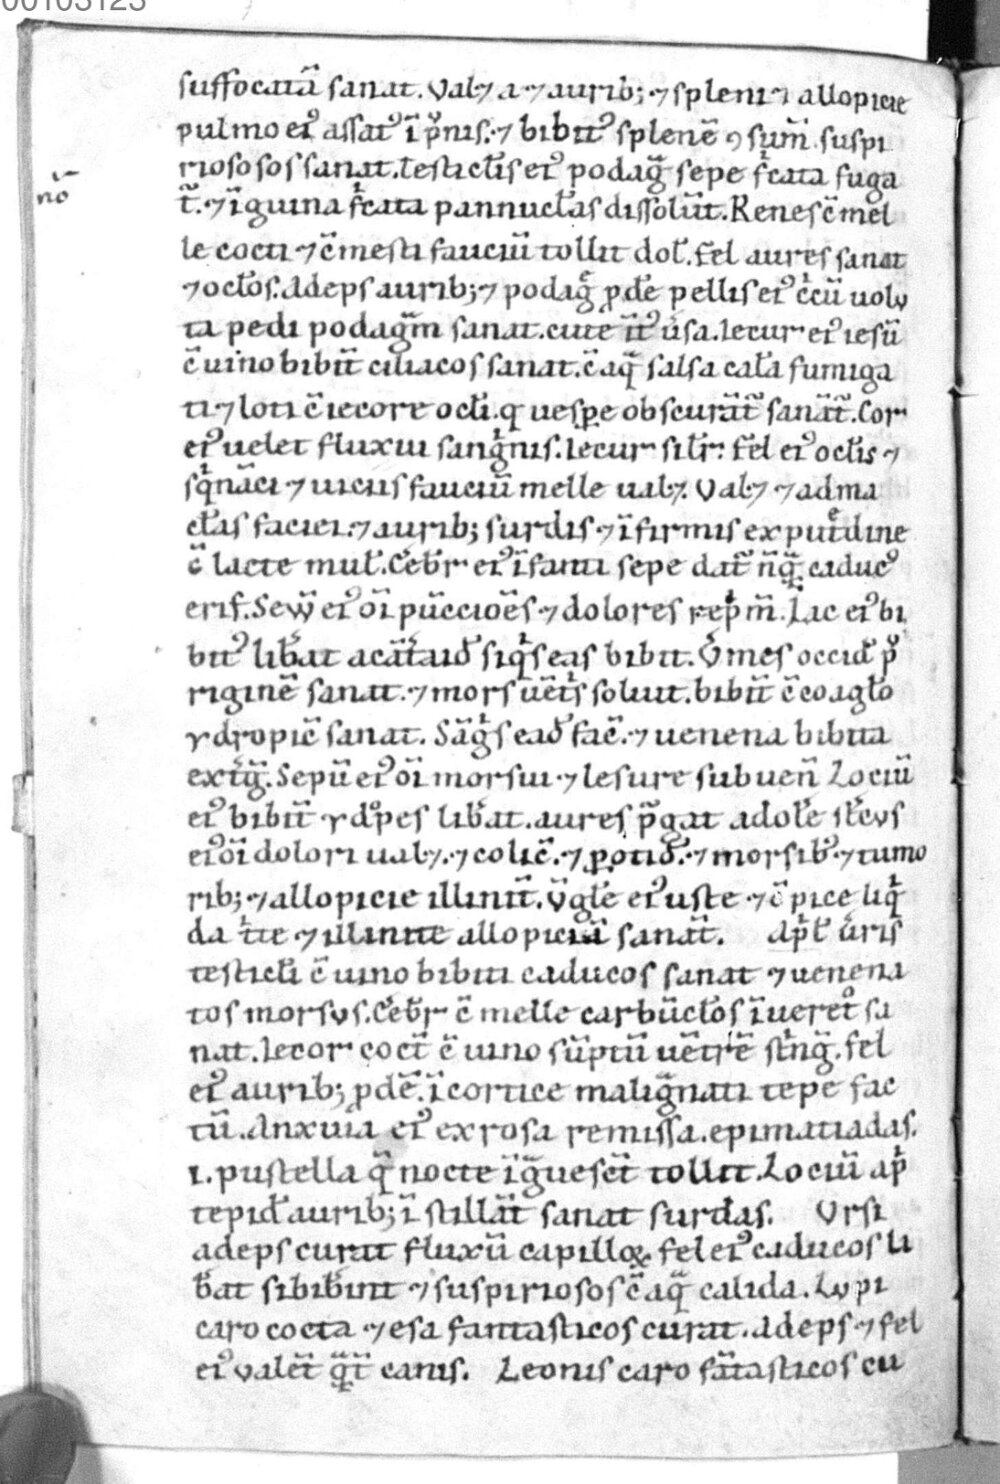 00103123
suffocatā sanat. Valꝫ a ⁊ aurib; ⁊ spleni ⁊ allopicie
pulmo eiꝰ assatꝰ ī p̄nis. ⁊ bibitꝰ splenē ꝯsum̄. suspi
rioso sos sanat. Testicl̄is eiꝰ podag̃ sepe fͥcata fuga
t̄. ⁊ īguina fͥcata pannucl̄as dissolūt. Renes c̄ mel
nō
le cocti ⁊ c̄mesti fauciū tollit dol̄. fel aures sanat
⁊ ocl̄os. Adeps aurib; ⁊ podag̃ ꝓdē pellis eiꝰ uolu
ta pedi podagm̃ sanat. cute īt̄ꝰ usa. Iecur eiꝰ iesū
c̄ uino bibit̄ ciliacos sanat. c̄ aq̃ salsa cal̄a fumiga
ti ⁊ loti c̄ iecore ocl̄i. q uesꝑe obscurāt̄ sanāt̄. Cor
eiꝰ uelet fluxui sangͥnis. Iecur sil̄r fel eiꝰ ocl̄is ⁊
sqͥnāci ⁊ uiciis fauciū melle ualꝫ. Valꝫ ⁊ ad ma
cl̄as faciei. ⁊ aurib; surdis ⁊ īfirmis ex put̄dine
c̄ lacte mul̄. Cēbr̄ eiꝰ īfanti sepe dat̄ nq̃ caducꝰ
erit. Sew̄ eiꝰ oī pūccioēs ⁊ dolores rep̄m̄. Lac eiꝰ bi
bitꝰ lib̄at acātaid̄ siqͥs eas bibit. Vmes occid̄ p
riginē sanat. ⁊ mors uētͥs soluit. bibit̄ c̄ coagl̄o
ydropic̄ sanat. Sāgͥs ead̄ fac̄. ⁊ uenena bibita
extīg̃. Sepū eiꝰ oī morsui ⁊ lesure subuen̄ Lociū
eiꝰ bibit̄ ydͦpes lib̄at. aures p̃gat adol̄e st̄cus
eiꝰ oī dolori ualꝫ. ⁊ colic̄. ⁊ ꝑotid̄. ⁊ morsibꝰ ⁊ tumo
rib; ⁊ allopicie illinit̄. Vgl̄e eiꝰ uste ⁊ c̄ pice liqͥ
da tͥte ⁊ illinite allopiciā sanāt. Apͥ uiris
testicl̄i c̄ uino bibiti caducos sanat ⁊ uenena
tos morsus. Cēbr̄ c̄ melle carbūcl̄os īueretͦ sa
nat. Iecor coct̄ c̄ uino sūptū uētrē stͥng̃. fel
eiꝰ aurib; ꝓdē. ī cortice malig̃nati tepe fac
tū. Anxuia eiꝰ ex rosa remissa. epimatiadas.
.i. pustella q̃ nocte īg̃uescīt tollit. Lociū apͥ
tepid̄ aurib; ī stillāt sanat surdas. Vrsi
adeps curat fluxū capilloꝝ fel eiꝰ caducos li
b̄at si bib̄int ⁊ suspiriosos c̄ aq̃ calida. Lupi
caro cocta ⁊ esa fantasticos curat. Adeps ⁊ fel
eiꝰ valēt q̃t̄ canis. Leonis caro fātasticos cu